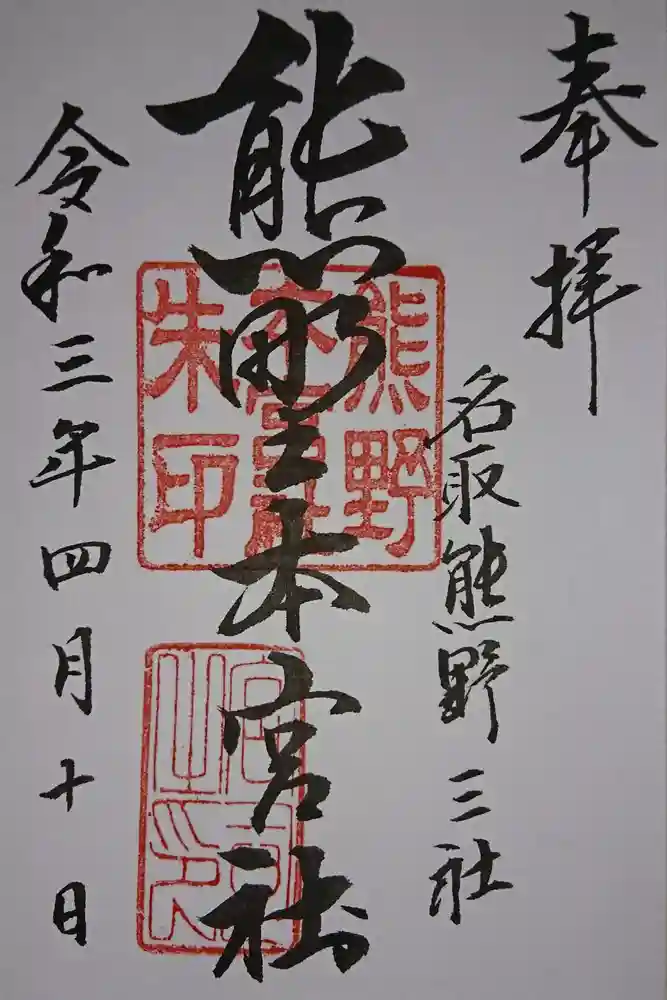 奉拝
名取熊野三社
熊野本宮社
熊野
本宮社
朱印
宮司
之印
令和三年四月十日